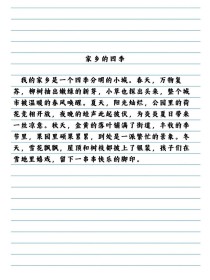 家乡的四季
我的家乡是一个四季分明的小城。春天，万物复
苏，柳树抽出嫩绿的新芽，小草也探出头来，整个城
市被温暖的春风唤醒。夏天，阳光灿烂，公园里的荷
花竞相开放，夜晚的蛙声此起彼伏，为炎炎夏日带来
一丝凉意。秋天，金黄的落叶铺满了街道，丰收的季
节里，果园里硕果累累，到处是一派繁忙的景象。冬
天，雪花飘飘，屋顶和树枝都披上了银装，孩子们在
雪地里嬉戏，留下一串串快乐的脚印。